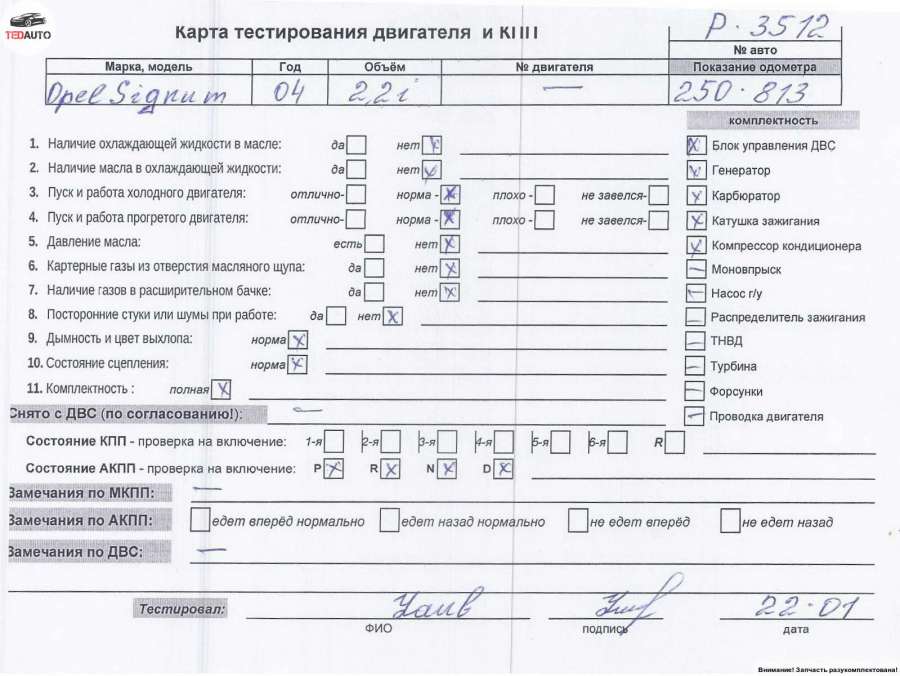 TEDAUTO
Карта тестирования двигателя и КПП
Р-3512
№ авто
Марка, модель Год Объём № двигателя Показание одометра
Opel Signum 04 2,2i — 250.813
комплектность
1. Наличие охлаждающей жидкости в масле: да нет
Блок управления ДВС
2. Наличие масла в охлаждающей жидкости: да нет
Генератор
3. Пуск и работа холодного двигателя: отлично- норма - плохо - не завелся-
Карбюратор
4. Пуск и работа прогретого двигателя: отлично- норма - плохо - не завелся-
Катушка зажигания
5. Давление масла: есть нет
Компрессор кондиционера
6. Картерные газы из отверстия масляного щупа: да нет
Моновпрыск
7. Наличие газов в расширительном бачке: да нет
Насос г/у
8. Посторонние стуки или шумы при работе: да нет
Распределитель зажигания
9. Дымность и цвет выхлопа: норма
ТНВД
10. Состояние сцепления: норма
Турбина
11. Комплектность : полная
Форсунки
Снято с ДВС (по согласованию!): —
Проводка двигателя
Состояние КПП - проверка на включение: 1-я 2-я 3-я 4-я 5-я 6-я R
Состояние АКПП - проверка на включение: P R N D
Замечания по МКПП: —
Замечания по АКПП: едет вперёд нормально едет назад нормально не едет вперёд не едет назад
Замечания по ДВС: —
Тестировал: 22-01
ФИО подпись дата
Внимание! Запчасть разукомплектована!